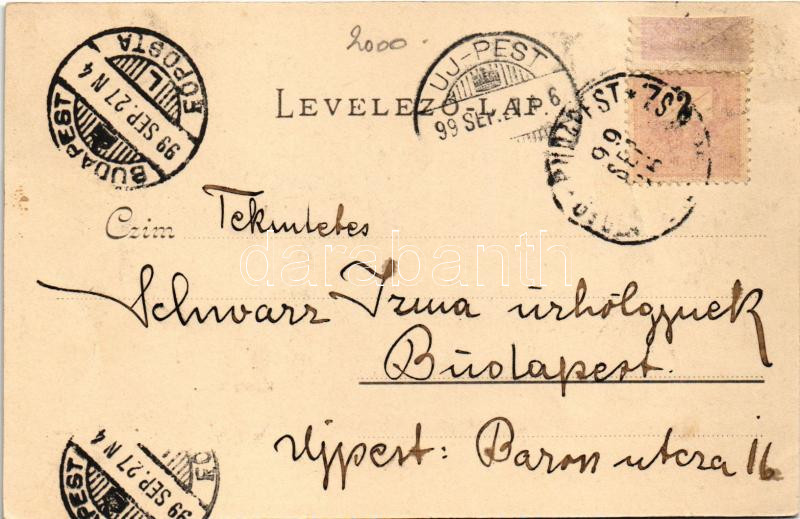 2000.
BUDAPEST FŐPOSTA
99 SEP. 27 N 4
L
UJ-PEST
99 SEP. 6
LEVELEZŐ-LAP.
99 SEP
Czim
Tekintetes
Schwarz Irma úrhölgynek
Budapest.
Ujpest: Baron utcza 16
darabanth
BUDAPEST
99 SEP. 27 N 4